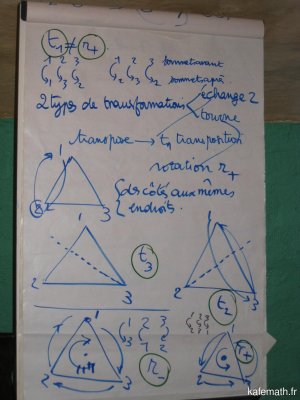 t₁ ≠ r₊
1 2 3
1 3 2
1 2 3
2
sommet avant
sommet après
2 types de transformation
échange 2
tourne
transpose → t₁ transposition
rotation r₊
des côtés aux mêmes
endroits.
1
2 3
1
2 3
t₃
1
2 3
t₂
1
2 3
1 2 3
3 1 2
r₋
1
2 3
r₊
kafemath.fr